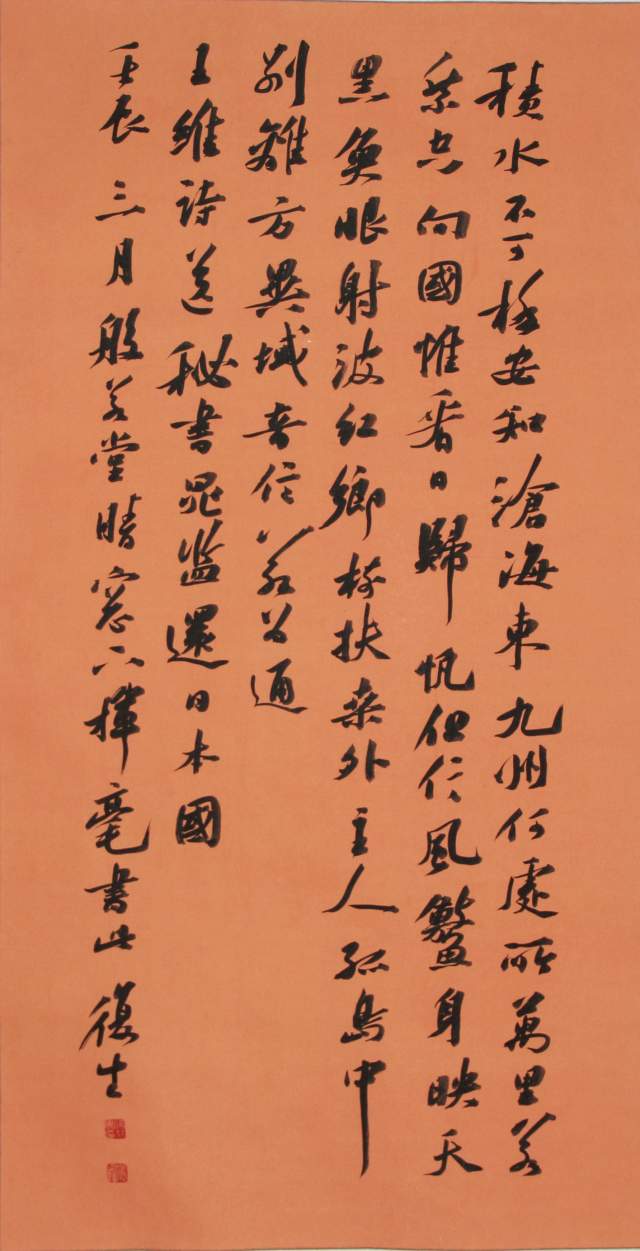 積水不可極安知滄海東九州何處所萬里若
乘空向國惟看日歸帆但信風鰲身映天
黑魚眼射波紅鄉樹扶桑外主人孤島中
別離方異域音信若為通
王維詩送秘書晁監還日本國
壬辰三月般若堂晴窗下揮毫書此復生